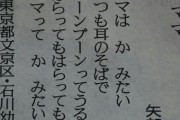 ママ
矢
マは か みたい
つも耳のそばで
ーンプーンってうる
らってもはらっても
マって か みたい
東京都文京区・石川幼